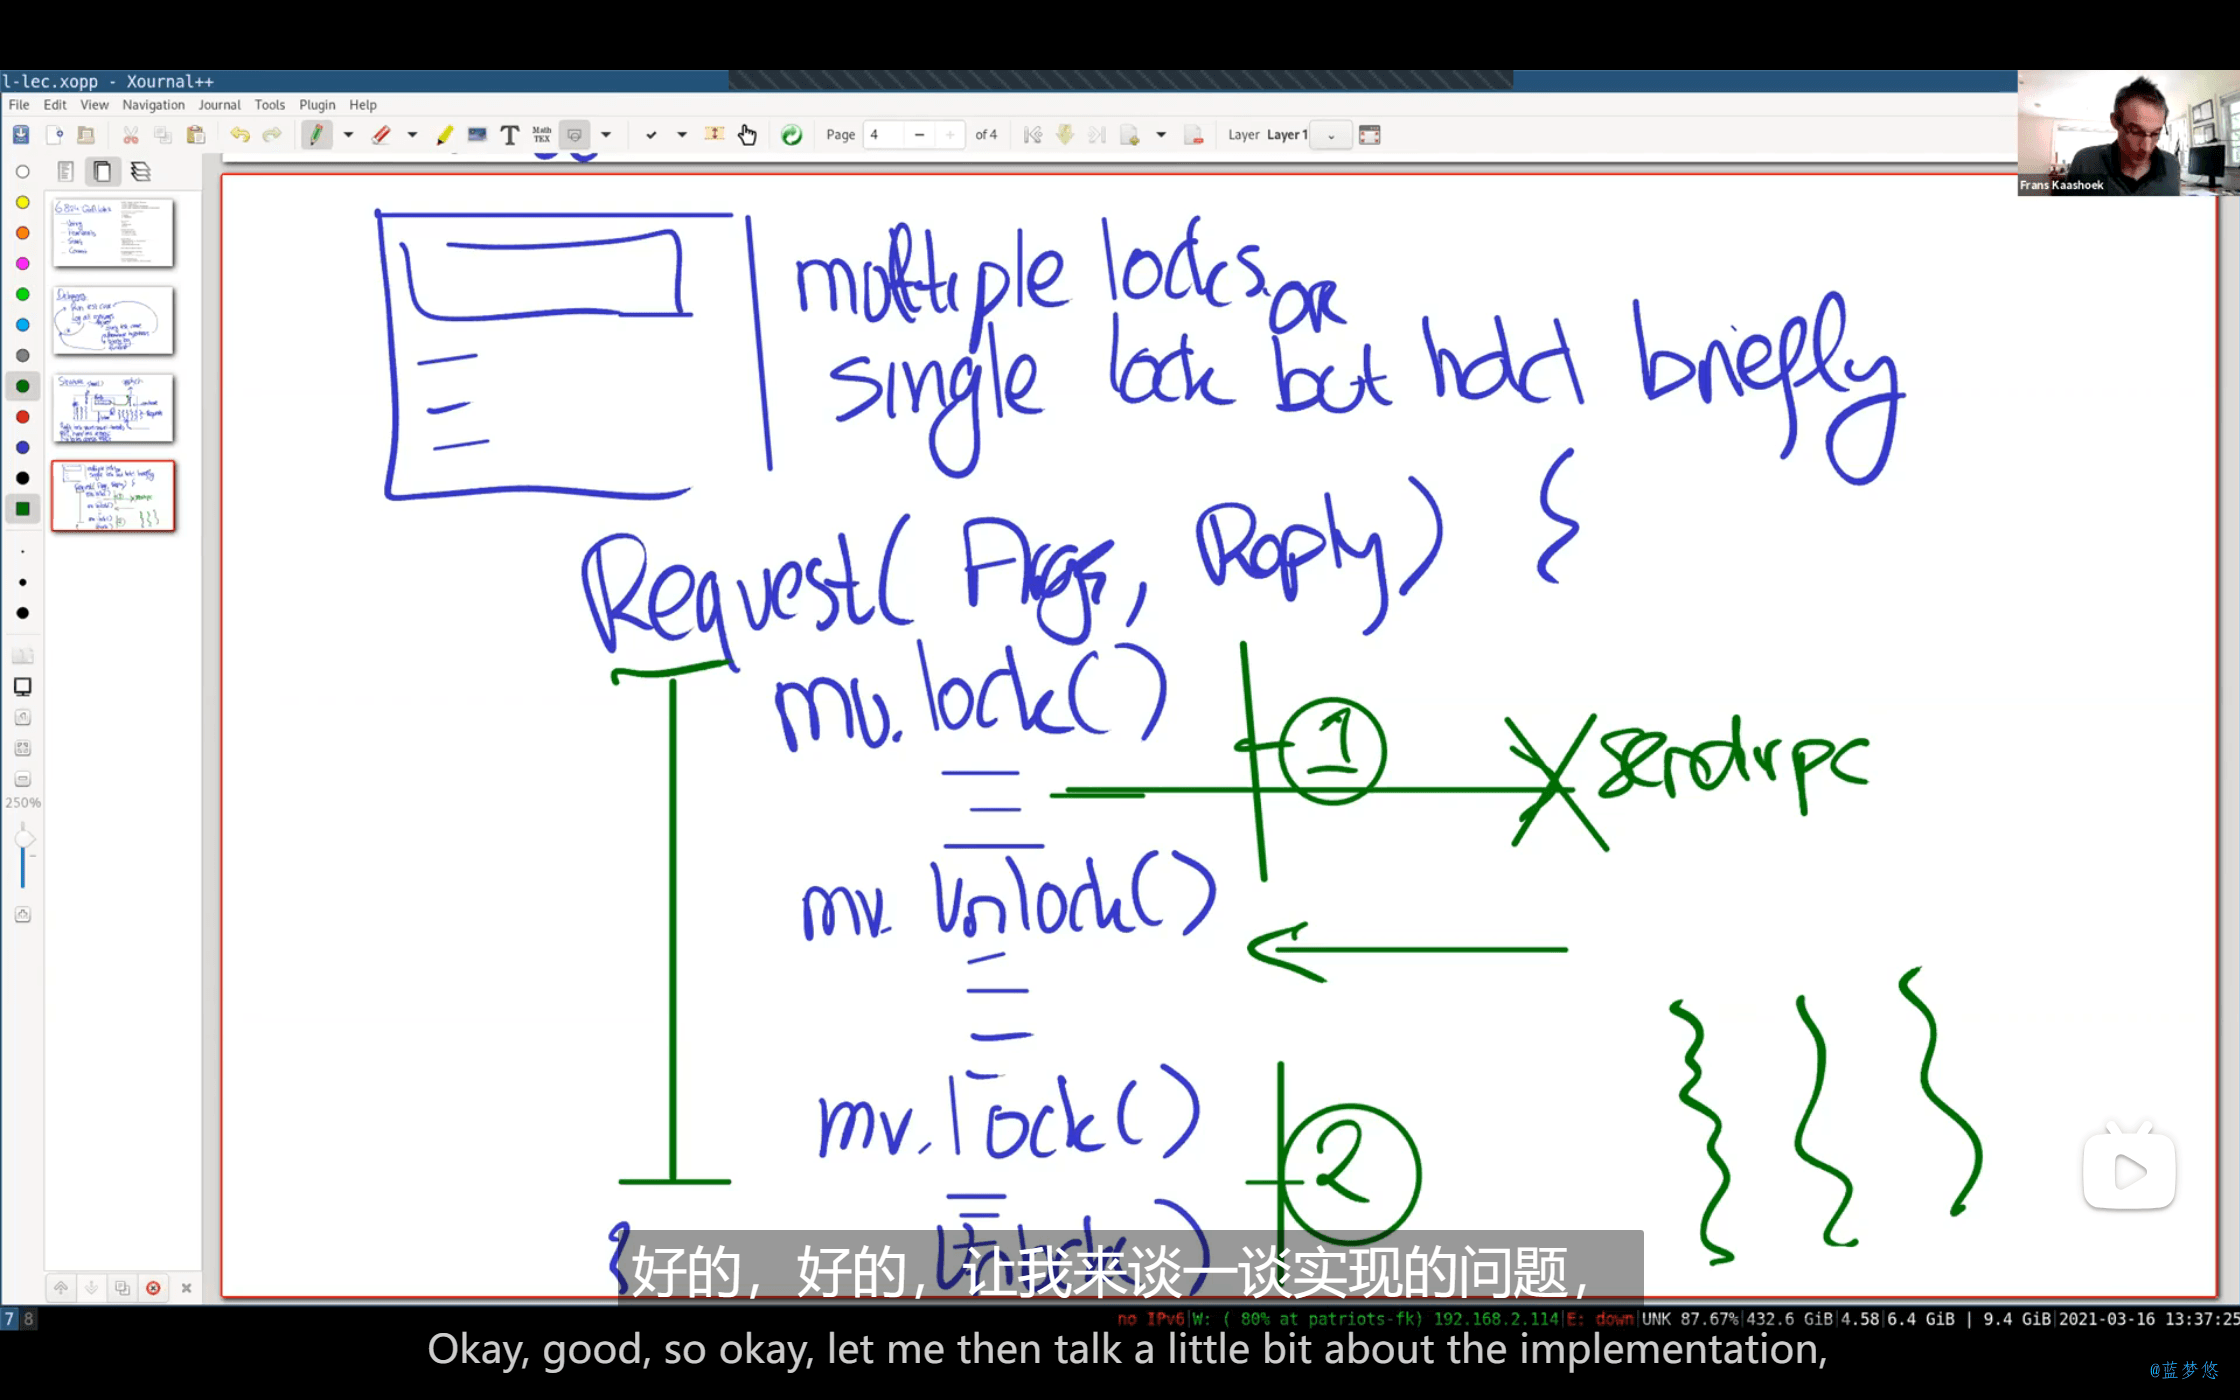 l-lec.xopp - Xournal++
File Edit View Navigation Journal Tools Plugin Help
Page 4 of 4 Layer Layer 1
Frans Kaashoek
multiple locks or
single lock but hold briefly
Request( Args, Reply) {
mu. lock()
1
sendrpc
mu. Unlock()
mu. lock()
2
Unlock()
250%
好的，好的，让我来谈一谈实现的问题，
7 8
no IPv6|W: ( 80% at patriots-fk) 192.168.2.114|E: down|UNK 87.67%|432.6 GiB|4.58|6.4 GiB | 9.4 GiB|2021-03-16 13:37:25
Okay, good, so okay, let me then talk a little bit about the implementation,
@蓝梦悠